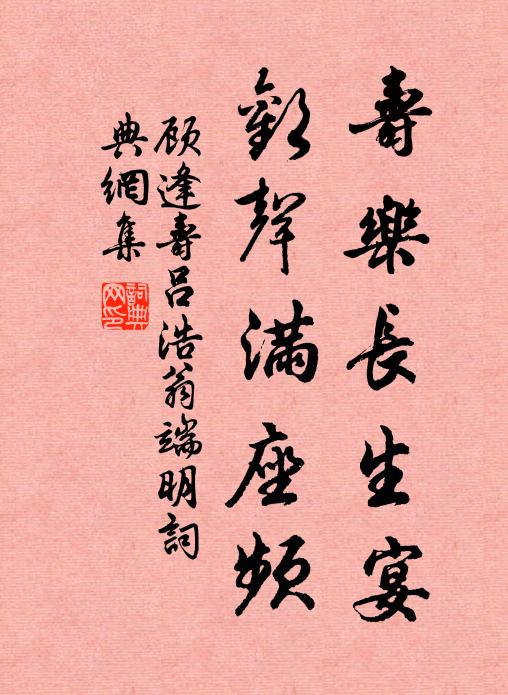 壽樂長生宴
歡聲滿座頻
顾逢壽呂浩翁端明詞
典網集
詞典網印